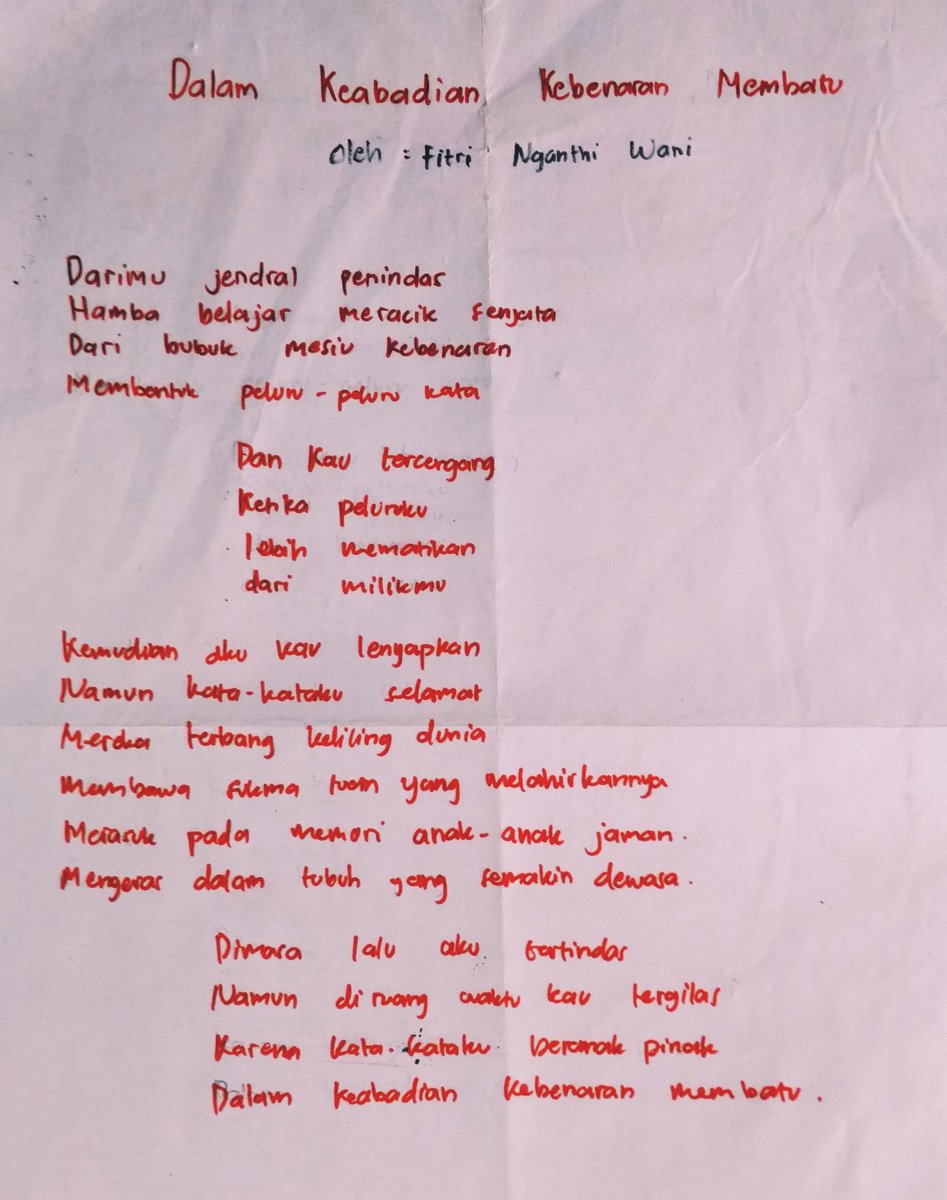 Dalam Keabadian Kebenaran Membatu
Oleh : Fitri Nganthi Wani
Darimu jendral penindas
Hamba belajar meracik senjata
Dari bubuk mesiu kebenaran
Membentuk peluru - peluru kata
Dan kau tercengang
Ketika peluruku
lebih mematikan
dari milikmu
Kemudian aku kau lenyapkan
Namun kata-kataku selamat
Mereka terbang keliling dunia
Membawa sukma tuan yang melahirkannya
Merasuk pada memori anak-anak jaman.
Mengeras dalam tubuh yang semakin dewasa.
Dimasa lalu aku tertindas
Namun di ruang waktu kau tergilas
Karena kata-kataku beranak pinak
Dalam keabadian kebenaran membatu.